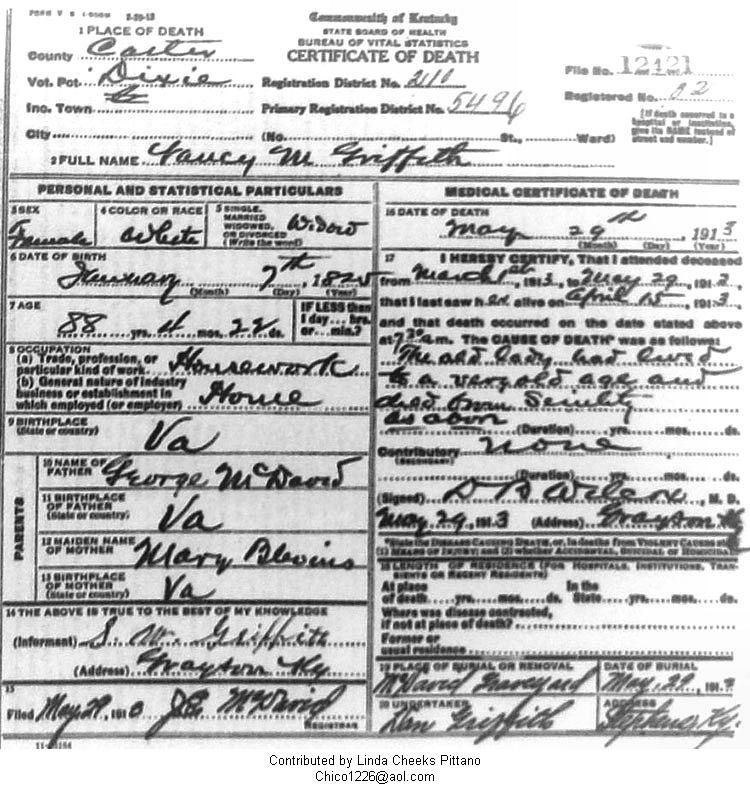 FORM V S 1-500M 2-20-13
Commonwealth of Kentucky
STATE BOARD OF HEALTH
BUREAU OF VITAL STATISTICS
CERTIFICATE OF DEATH
1 PLACE OF DEATH
County Carter
Vot. Pct. Dixie
Inc. Town
City
Registration District No. 2110
Primary Registration District No. 5496
(No. St., Ward)
File No. 12421
Registered No. 22
[If death occurred in a hospital or institution, give its NAME instead of street and number.]
2 FULL NAME Nancy M Griffith
PERSONAL AND STATISTICAL PARTICULARS
3 SEX
Female
4 COLOR OR RACE
White
5 SINGLE, MARRIED WIDOWED, OR DIVORCED (Write the word)
Widow
6 DATE OF BIRTH
January 7th, 1825
(Month) (Day) (Year)
7 AGE
88 yrs. 4 mos. 22 ds.
IF LESS than 1 day... hrs. or... min.?
8 OCCUPATION
(a) Trade, profession, or particular kind of work Housework
(b) General nature of industry business or establishment in which employed (or employer) Home
9 BIRTHPLACE
(State or country)
Va
PARENTS
10 NAME OF FATHER
George McDavid
11 BIRTHPLACE OF FATHER
(State or country)
Va
12 MAIDEN NAME OF MOTHER
Mary Blevins
13 BIRTHPLACE OF MOTHER
(State or country)
Va
14 THE ABOVE IS TRUE TO THE BEST OF MY KNOWLEDGE
(Informant) S. W. Griffith
(Address) Grayson Ky
15
Filed May 29, 1913 McDavid
REGISTRAR
MEDICAL CERTIFICATE OF DEATH
16 DATE OF DEATH
May 29th, 1913
(Month) (Day) (Year)
17 I HEREBY CERTIFY, That I attended deceased
from March 1st, 1913, to May 29, 1913,
that I last saw her alive on April 15, 1913,
and that death occurred on the date stated above
at 7 30 a m. The CAUSE OF DEATH* was as follows:
The old lady had lived
to a very old age and
died from Senility
as above
(Duration) yrs. mos. ds.
Contributory none
(SECONDARY)
(Duration) yrs. mos. ds.
(Signed) Wilcox, M. D.
May 29, 1913 (Address) Grayson Ky
*State the DISEASE CAUSING DEATH, or, in deaths from VIOLENT CAUSES state
(1) MEANS OF INJURY; and (2) whether ACCIDENTAL, SUICIDAL or HOMICIDAL
18 LENGTH OF RESIDENCE (FOR HOSPITALS, INSTITUTIONS, TRANSIENTS OR RECENT RESIDENTS)
At place of death yrs. mos. ds. In the State yrs. mos. ds.
Where was disease contracted,
if not at place of death?
Former or
usual residence
19 PLACE OF BURIAL OR REMOVAL
McDavid Graveyard
DATE OF BURIAL
May 29, 1913
20 UNDERTAKER
Dan Griffith
ADDRESS
Stephens Ky
Contributed by Linda Cheeks Pittano
Chico1226@aol.com